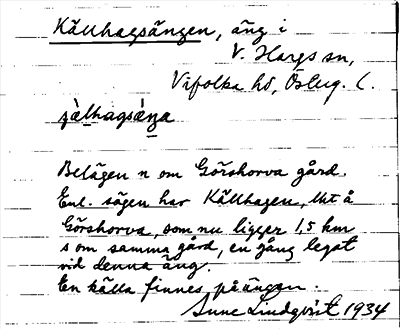 Källhagsängen, äng i
V. Hargs sn,
Vifolka hd, Östug. L.
Belägen n om Görshorva gård.
Enl. sägen har Källhagen, tkt å
Görshorva, som nu ligger 1,5 km
s om samma gård, en gång legat
vid denna äng.
En källa finnes på ängen.
Sune Lindqvist 1934